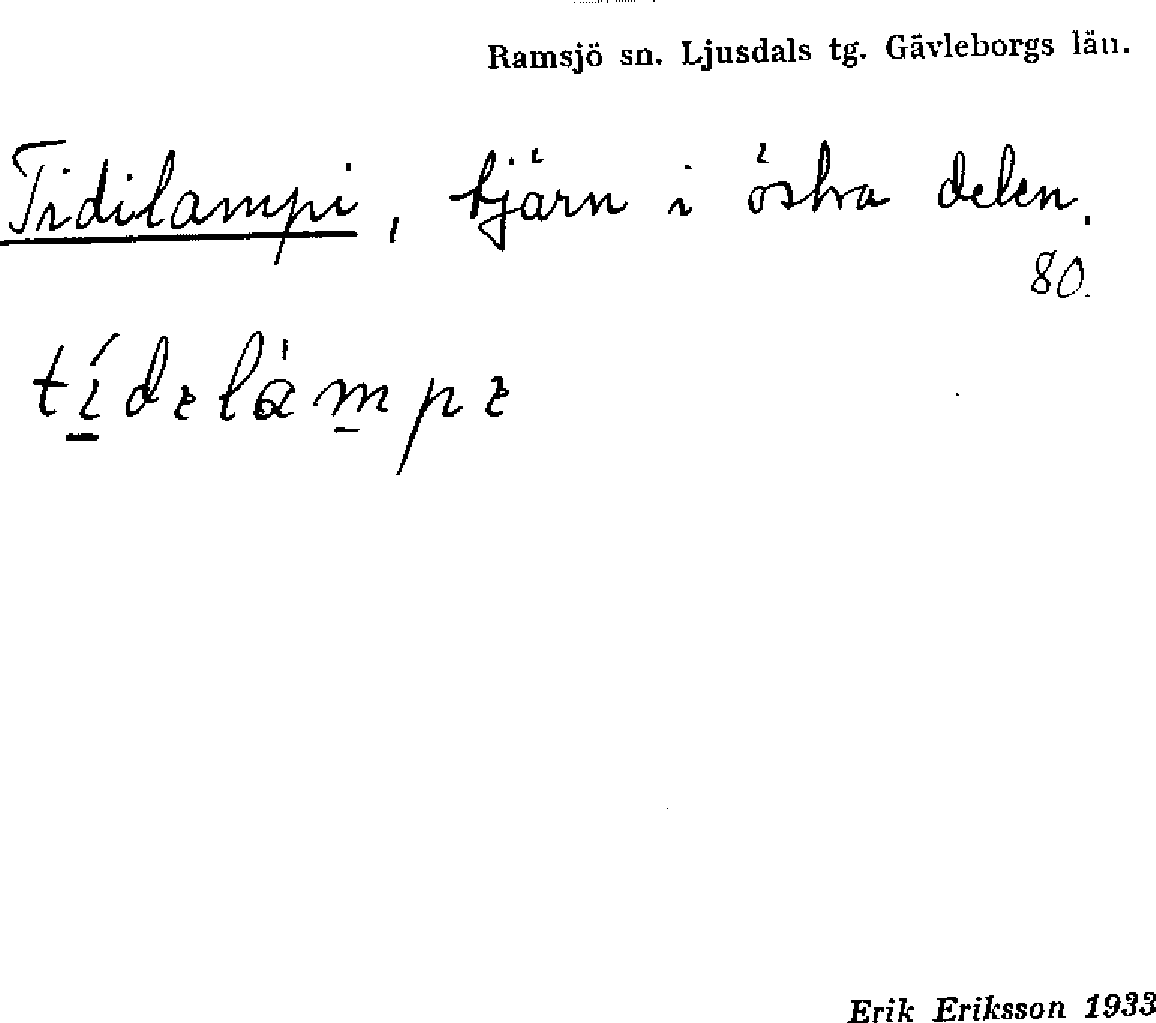 Ramsjö sn. Ljusdals tg. Gävleborgs län.
Tidilampi, tjärn i östra delen.
80.
tídelàmpe
Erik Eriksson 1933